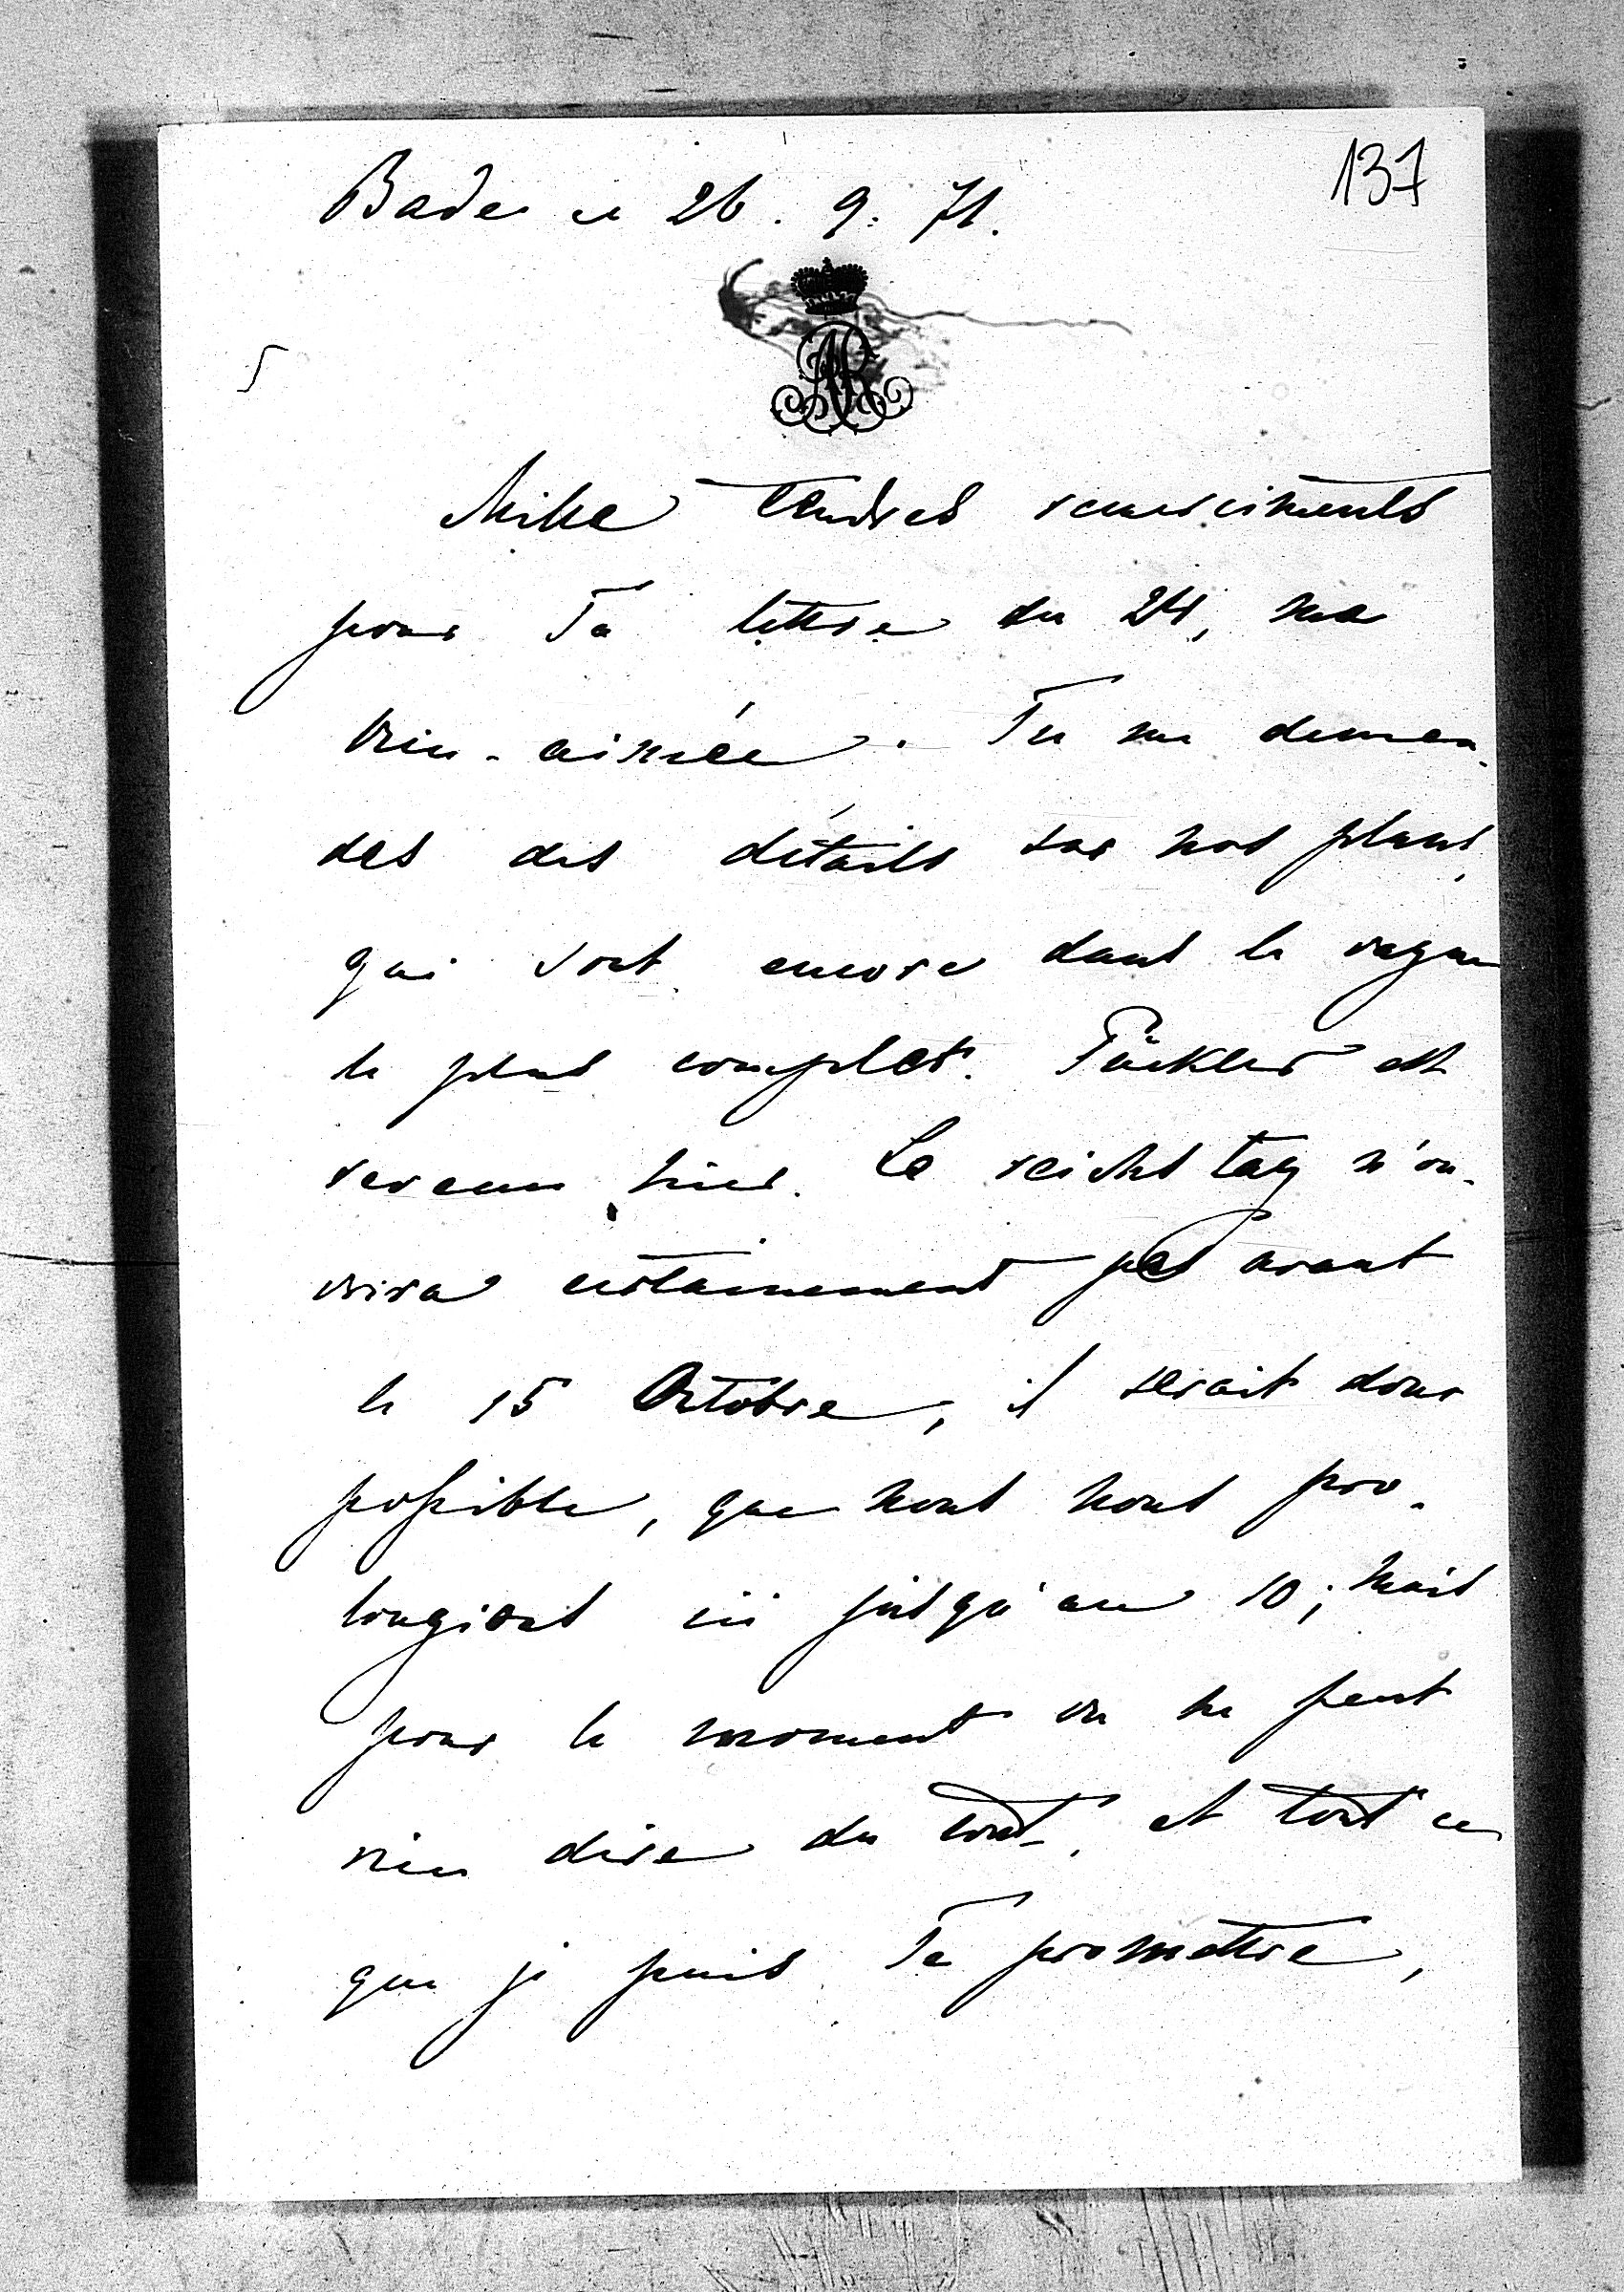 137
Bade ce 26. 9. 71.
AR
Mille tendres remerciments
pour Ta lettre du 24, ma
bien-aimée. Tu me deman-
des des détails sur nos plans,
qui sont encore dans le vague
le plus complet. Pückler est
revenu hier. Le reichstag n'ou-
vrira certainement pas avant
le 15 Octobre, il serait donc
possible, que nous nous pro-
longions ici jusqu'au 10; mais
pour le moment on ne peut
rien dire du tout, et tout ce
que je puis Te promettre,